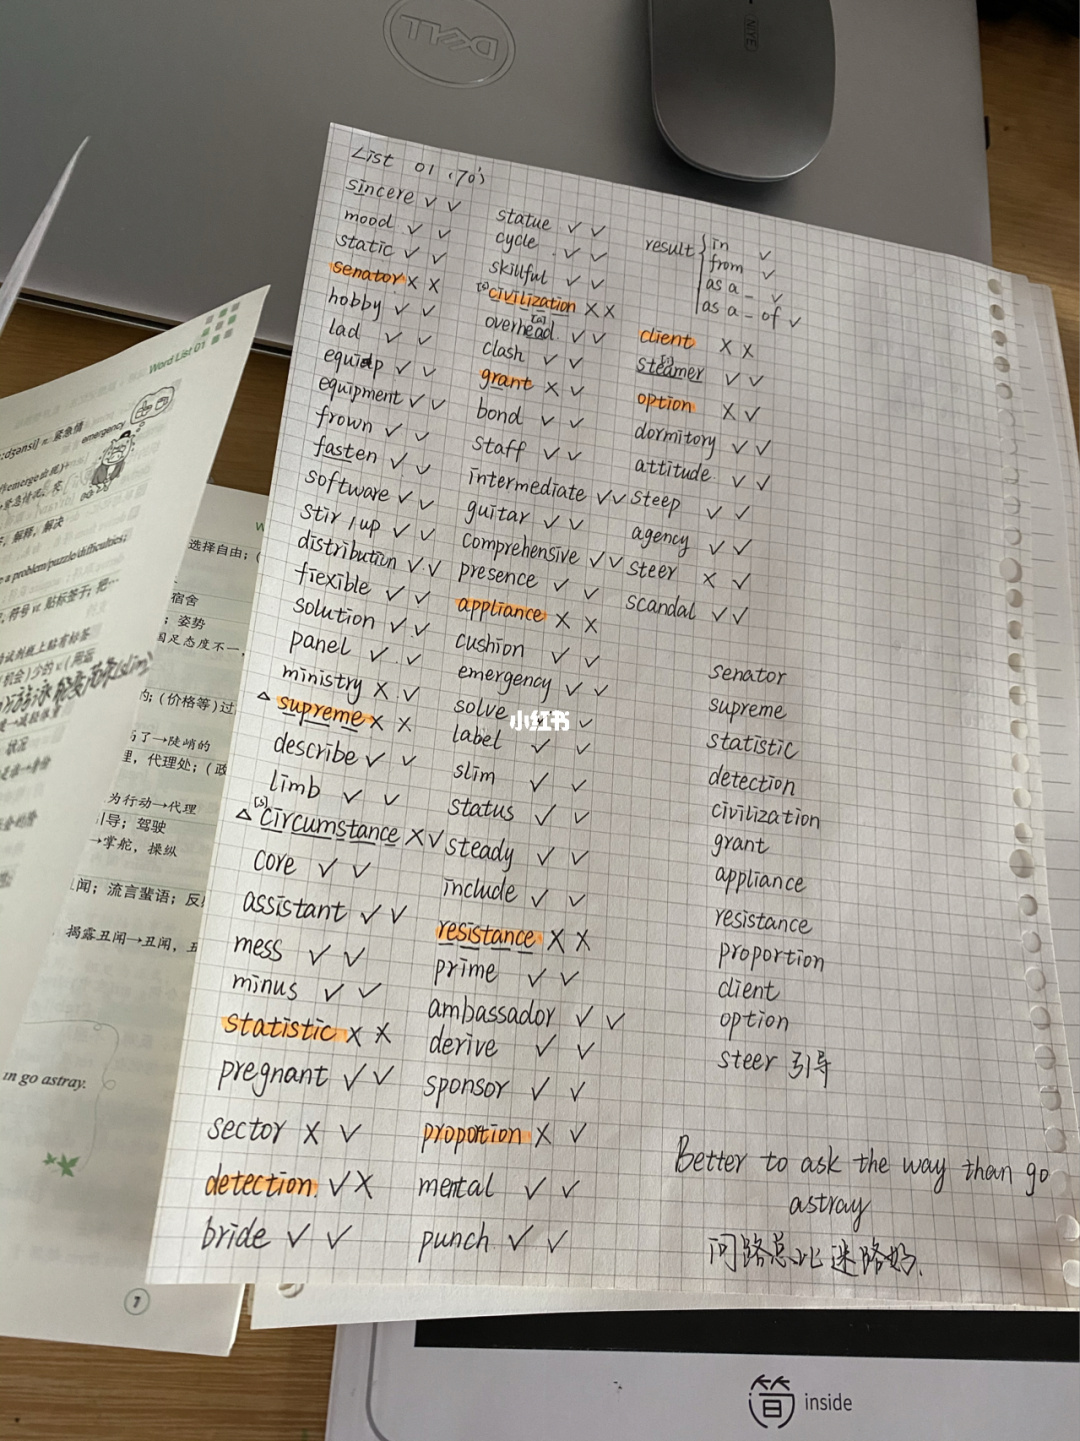 DELL
NIYE
List 01 (70')
sincere ✓ ✓
mood ✓ ✓
static ✓ ✓
senator X X
hobby ✓ ✓
lad ✓ ✓
equip ✓ ✓
equipment ✓ ✓
frown ✓ ✓
fasten ✓ ✓
software ✓ ✓
stir / up ✓ ✓
distribution ✓ ✓
fiexible ✓ ✓
solution ✓ ✓
panel ✓ ✓
ministry X ✓
△ supreme X X
describe ✓ ✓
limb ✓ ✓
[s]
△ circumstance X ✓
core ✓ ✓
assistant ✓ ✓
mess ✓ ✓
minus ✓ ✓
statistic X X
pregnant ✓ ✓
sector X ✓
detection ✓ X
bride ✓ ✓
statue ✓ ✓
cycle ✓ ✓
skillful ✓ ✓
civilization X X
overhead ✓ ✓
clash ✓ ✓
grant X ✓
bond ✓ ✓
staff ✓ ✓
intermediate ✓ ✓
guitar ✓ ✓
comprehensive ✓ ✓
presence ✓ ✓
appliance X X
cushion ✓ ✓
emergency ✓ ✓
solve ✓
label ✓ ✓
slim ✓ ✓
status ✓ ✓
steady ✓ ✓
include ✓ ✓
resistance X X
prime ✓ ✓
ambassador ✓ ✓
derive ✓ ✓
sponsor ✓ ✓
proportion X ✓
mental ✓ ✓
punch ✓ ✓
result
in ✓
from ✓
as a - ✓
as a - of ✓
client X X
steamer ✓ ✓
option X ✓
dormitory ✓ ✓
attitude ✓ ✓
steep ✓ ✓
agency ✓ ✓
steer X ✓
scandal ✓ ✓
senator
supreme
statistic
detection
civilization
grant
appliance
resistance
proportion
client
option
steer 引导
Better to ask the way than go
astray
问路总比迷路好.
小红书
Word List 01
紧急情
emergency
解释，解决
a problem/puzzle/difficulties;
in go astray.
7
选择自由；（
宿舍
；姿势
足态度不一，
；（价格等）过
了→陡峭的
，代理处；（政
为行动→代理
引导；驾驶
→掌舵，操纵
闻；流言蜚语；反
揭露丑闻→丑闻，
简 inside